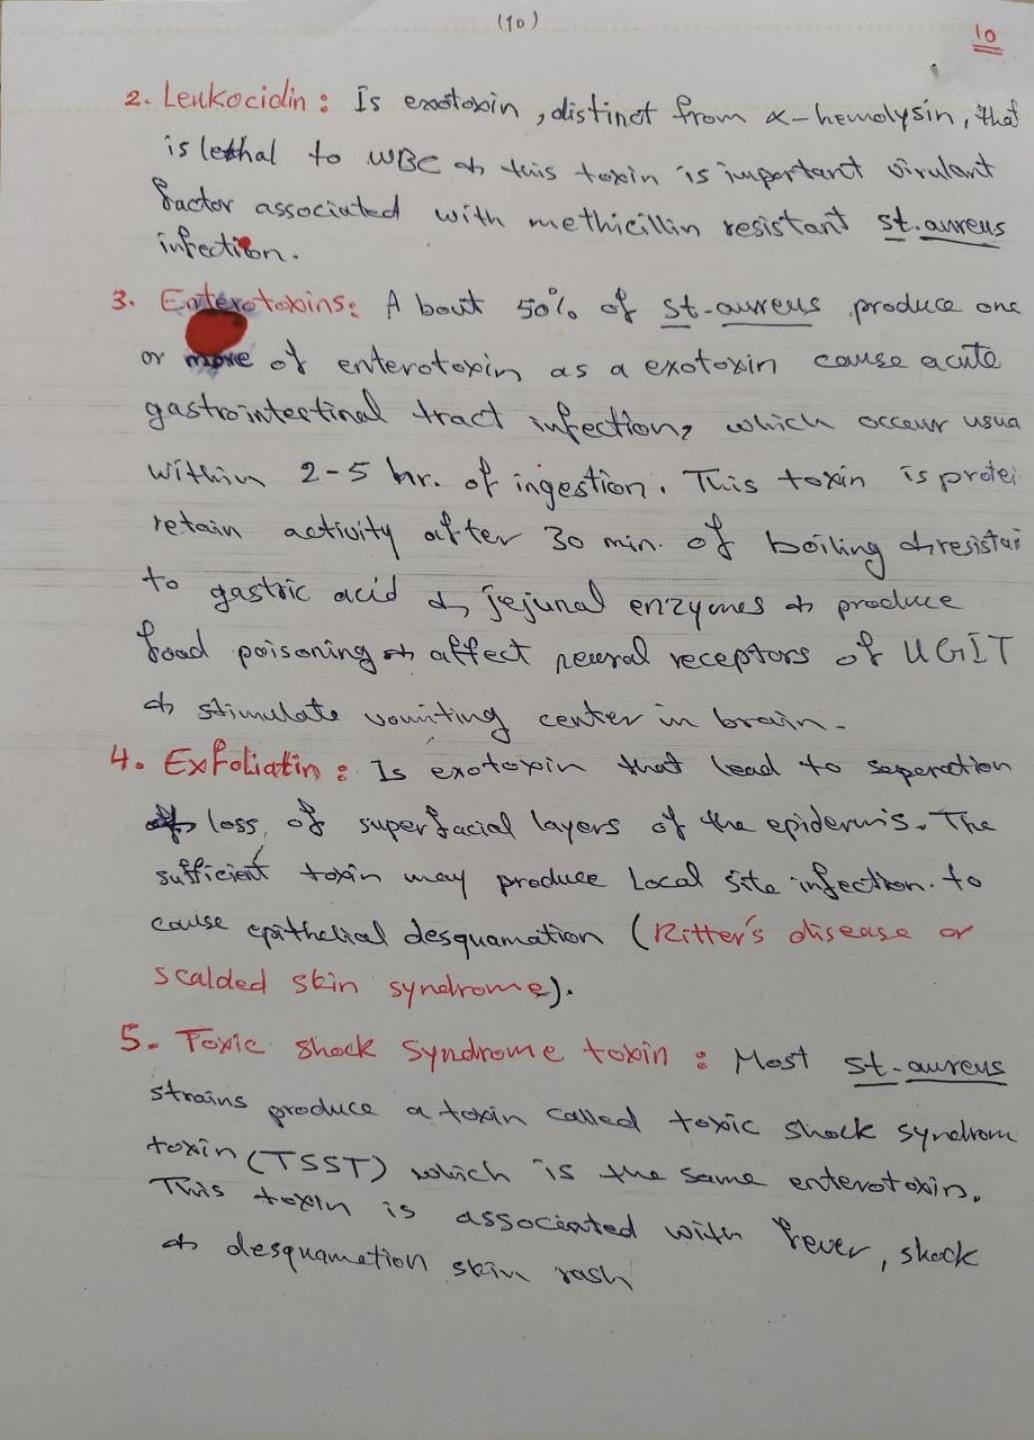 (10)
10
2. Leukocidin : Is exotoxin , distinct from α-hemolysin, that
is lethal to WBC & this toxin is important virulant
factor associated with methicillin resistant st. aureus
infection.
3. Enterotoxins: A bout 50% of st. aureus produce one
or more of enterotoxin as a exotoxin cause acute
gastrointestinal tract infection, which occur usua
within 2-5 hr. of ingestion. This toxin is protei
retain activity after 30 min. of boiling & resistan
to gastric acid & jejunal enzymes & produce
food poisoning & affect neural receptors of UGIT
& stimulate vomiting center in brain.
4. Exfoliatin : Is exotoxin that lead to seperation
loss of superfacial layers of the epidermis. The
sufficient toxin may produce local site infection. to
cause epithelial desquamation (Ritter's disease or
scalded skin syndrome).
5. Toxic shock syndrome toxin : Most st. aureus
strains produce a toxin called toxic shock syndrom
toxin (TSST) which is the same enterotoxin.
This toxin is associated with fever, shock
& desquamation skin rash